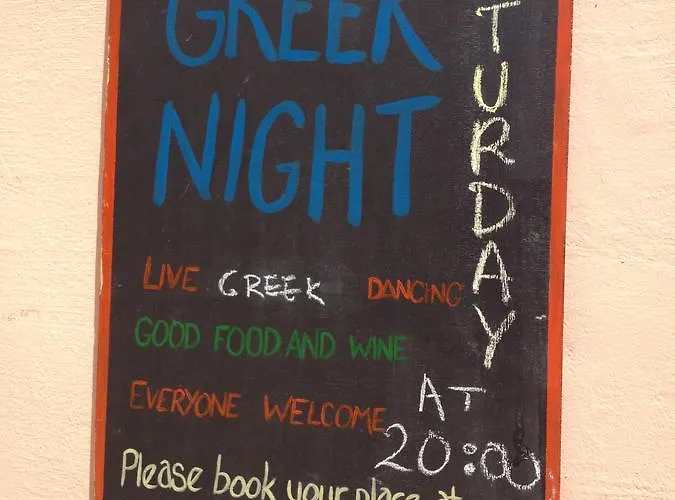 GREEK
NIGHT
TURDAY
LIVE GREEK DANCING
GOOD FOOD AND WINE
EVERYONE WELCOME
AT
20:00
Please book your place at